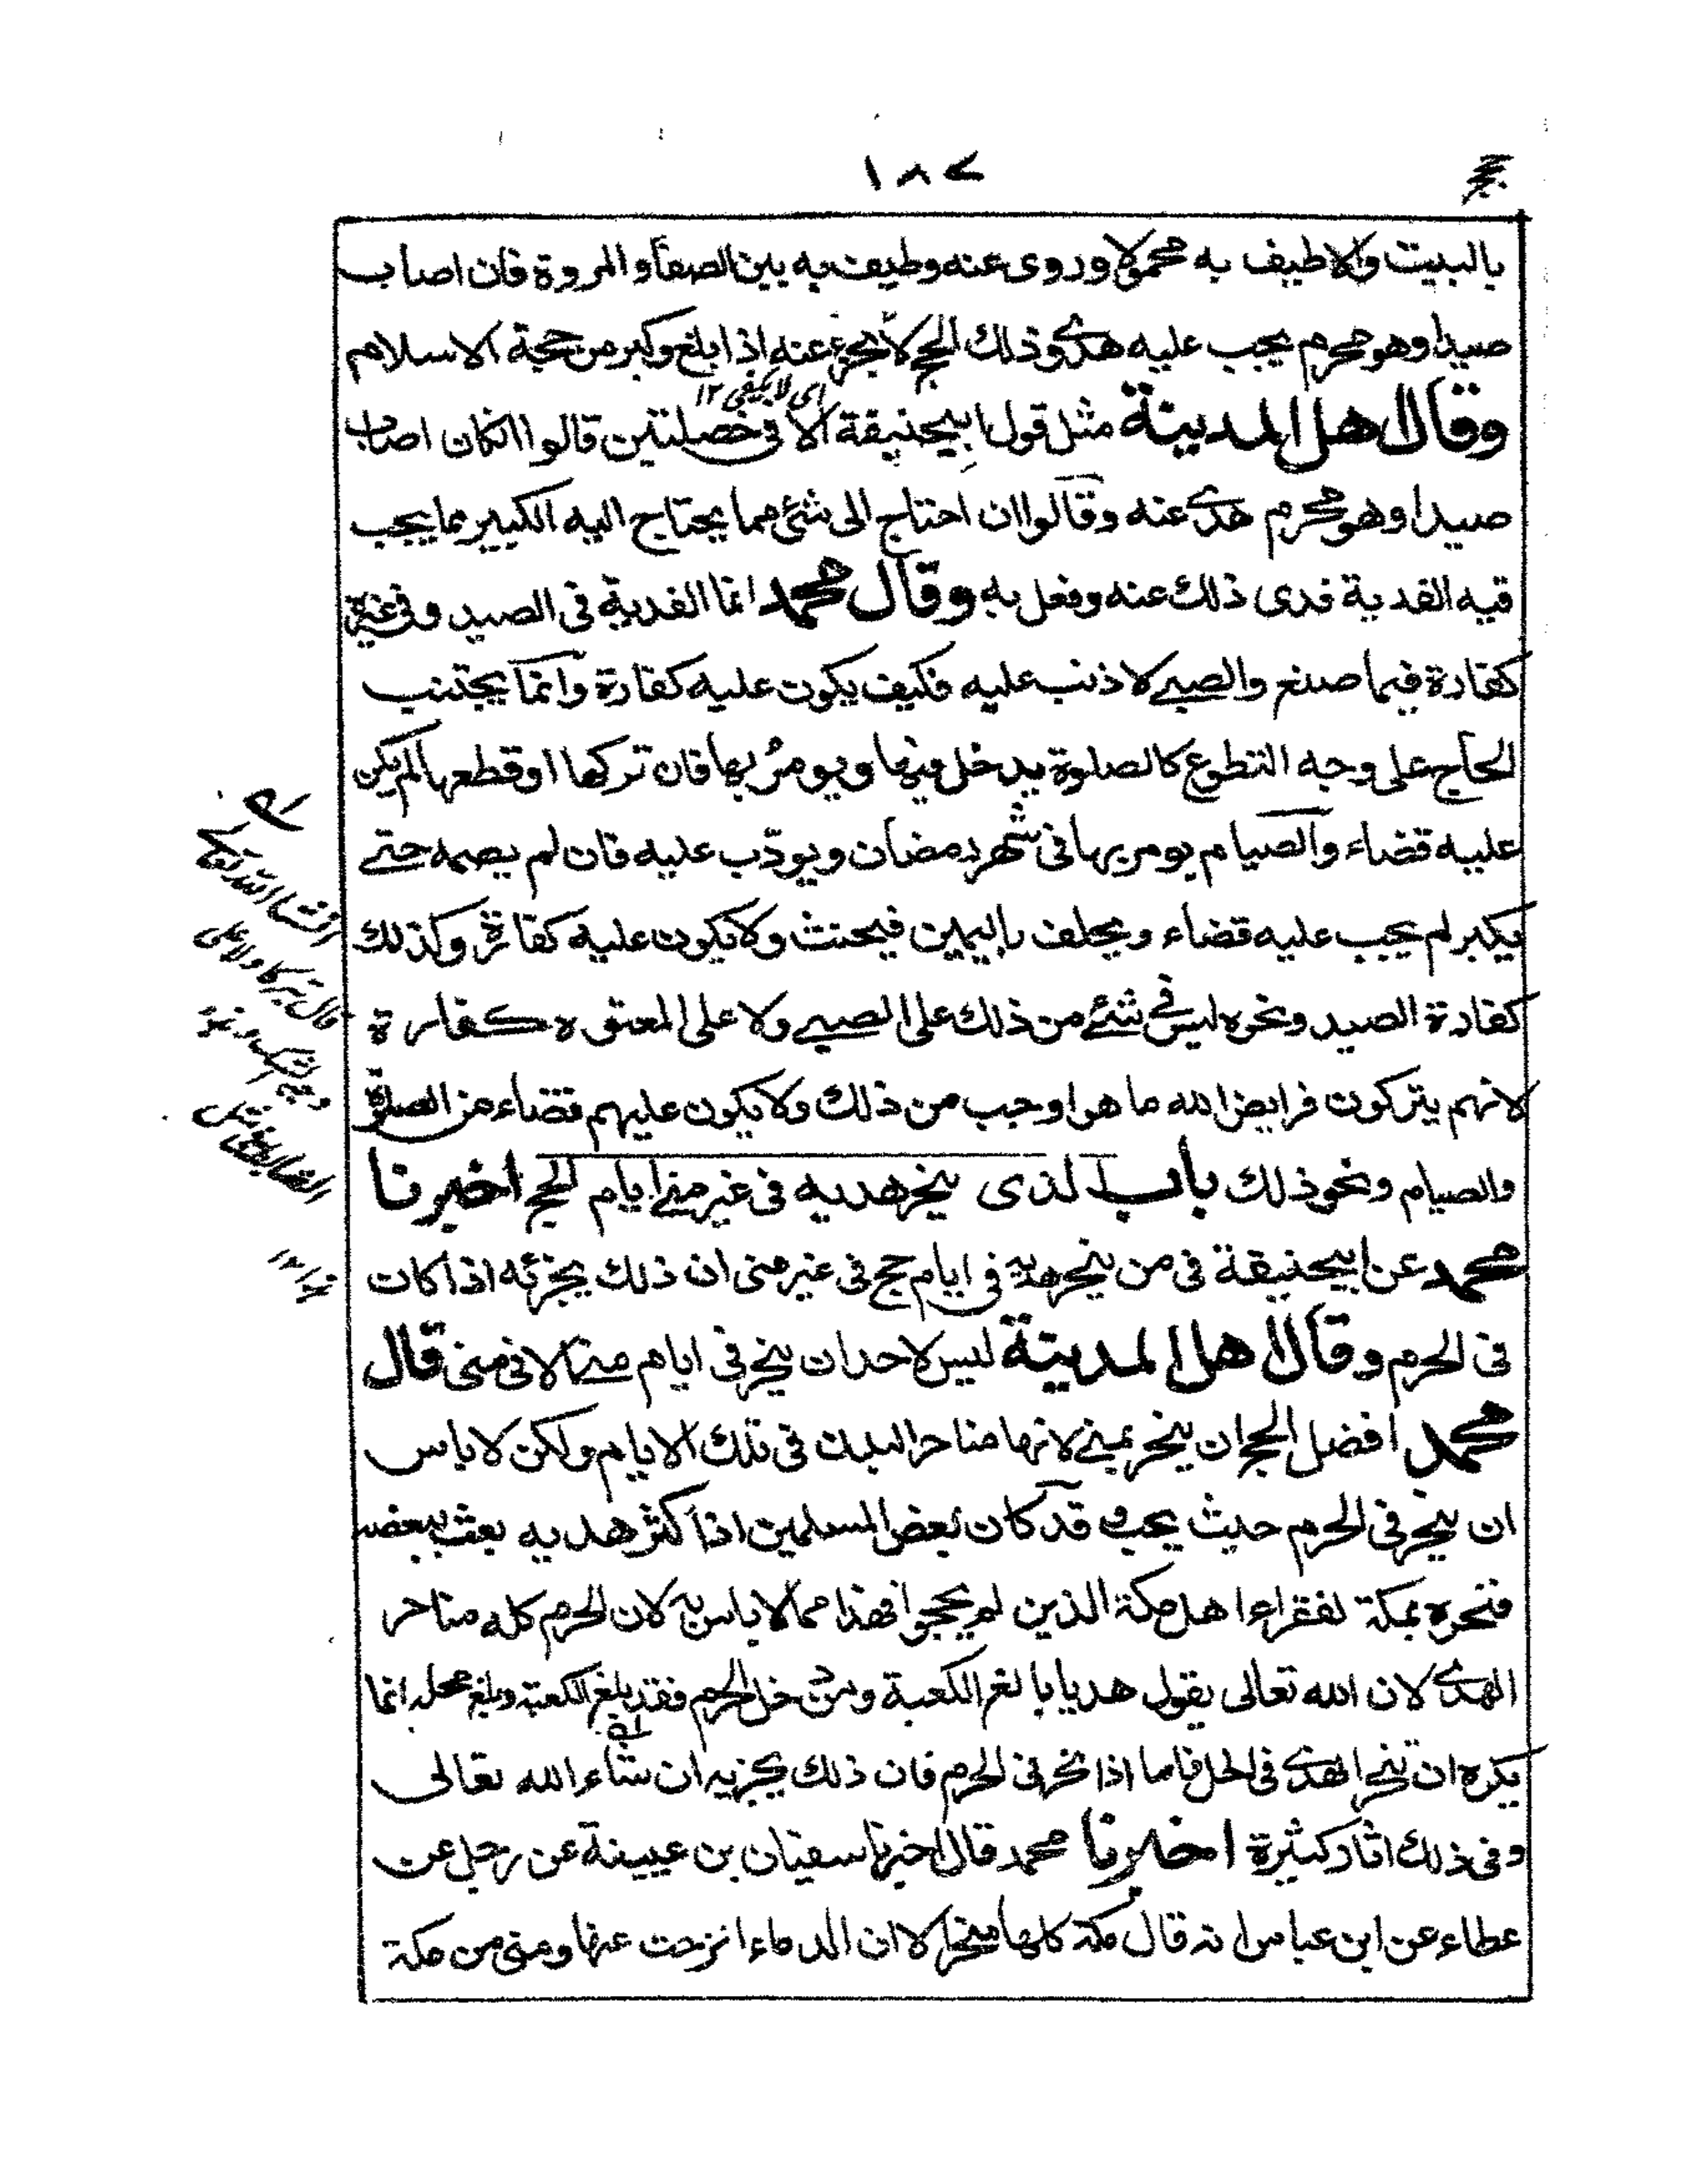 ١٨٧
بالبيت والاطيف به محمولا وروى عنه وطيف به بين الصفا والمروة فان اصاب
صيدا وهو محرم يجب عليه هدى وذلك الحج لا يجزئ عنه اذا بلغ وكبر من حجة الاسلام
اى لا يكفى ١٢
وقال اهل المدينة مثل قول ابيحنيفة الا فى خصلتين قالوا ان كان اصاب
صيدا وهو محرم هدى عنه وقالوا ان احتاج الى شئ مما يحتاج اليه الكبير مما يجب
فيه الفدية فدى ذلك عنه وفعل به وقال محمد انما الفدية فى الصيد وفى غيره
كفارة فيما صنع والصبے لا ذنب عليه فكيف يكون عليه كفارة وانما يجتنب
الحاج على وجه التطوع كالصلوة يدخل فيها ويومر بها فان تركها او قطعها لم يكن
عليه قضاء والصيام يومر بها فى شهر رمضان ويودّب عليه فان لم يصمه حتے
يكبر لم يجب عليه قضاء ويحلف باليمين فيحنث ولا يكون عليه كفارة وكذلك
كفارة الصيد ونحوه ليس فى شئے من ذلك على الصبے ولا على المعتوه كفارة
لانهم يتركون فرايض الله ما هو اوجب من ذلك ولا يكون عليهم قضاء من الصلوة
والصيام ونحو ذلك باب الذى ينحر هديه فى غير منے ايام الحج اخبرنا
محمد عن ابيحنيفة فى من ينحر هديه فى ايام حج فى غير منى ان ذلك يجزئه اذا كان
فى الحرم وقال اهل المدينة ليس لاحد ان ينحر فى ايام منے الا فى منى قال
محمد افضل الحج ان ينحر بمنے لانها مناحر البدن فى تلك الايام ولكن لا باس
ان ينحر فى الحرم حيث يحب وقد كان بعض المسلمين اذا كثر هديه بعث ببعضه
فنحره بمكة لفقراء اهل مكة الذين لم يحجوا فهذا مما لا باس به لان الحرم كله مناحر
الهدى لان الله تعالى يقول هديا بالغ الكعبة ومن دخل الحرم فقد بلغ الكعبة وبلغ محله انما
يكره ان ينحر الهدى فى الحل فاما اذا نحر فى الحرم فان ذلك يجزيه ان شاء الله تعالى
وفى ذلك اثار كثيرة اخبرنا محمد قال اخبرنا سفيان بن عيينة عن رجل عن
عطاء عن ابن عباس انه قال مكة كلها منحر الا ان الدماء انزحت عنها ومنى من مكة
ان شاء الله تعالى
قال تبركا ولا على
وجه الشك